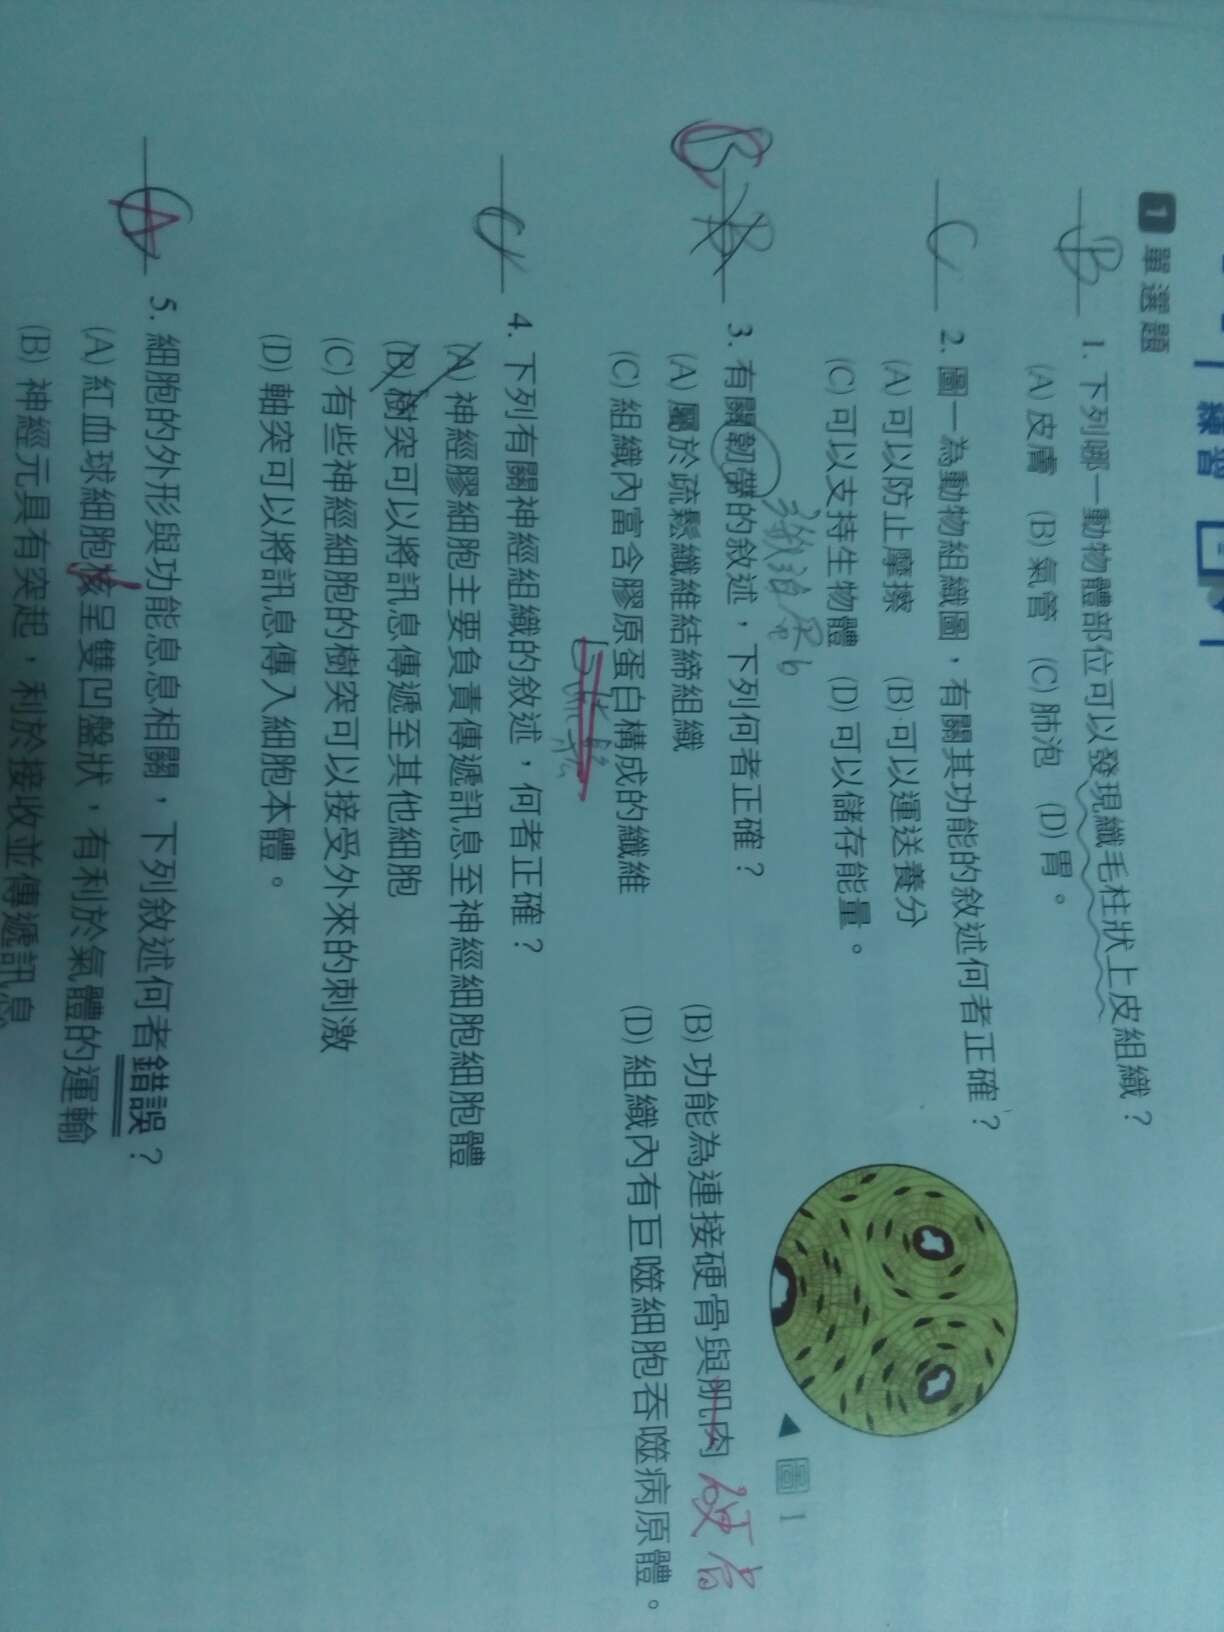 練習
1 單選題
B 1. 下列哪一動物體部位可以發現纖毛柱狀上皮組織？
(A) 皮膚 (B) 氣管 (C) 肺泡 (D) 胃。
C 2. 圖一為動物組織圖，有關其功能的敘述何者正確？
(A) 可以防止摩擦 (B) 可以運送養分
(C) 可以支持生物體 (D) 可以儲存能量。
圖 1
C B 3. 有關韌帶的敘述，下列何者正確？
(A) 屬於疏鬆纖維結締組織 (B) 功能為連接硬骨與肌肉 硬骨
(C) 組織內富含膠原蛋白構成的纖維 (D) 組織內有巨噬細胞吞噬病原體。
C 4. 下列有關神經組織的敘述，何者正確？
(A) 神經膠細胞主要負責傳遞訊息至神經細胞細胞體
(B) 樹突可以將訊息傳遞至其他細胞
(C) 有些神經細胞的樹突可以接受外來的刺激
(D) 軸突可以將訊息傳入細胞本體。
A 5. 細胞的外形與功能息息相關，下列敘述何者錯誤？
(A) 紅血球細胞核呈雙凹盤狀，有利於氣體的運輸
(B) 神經元具有突起，利於接收並傳遞訊息